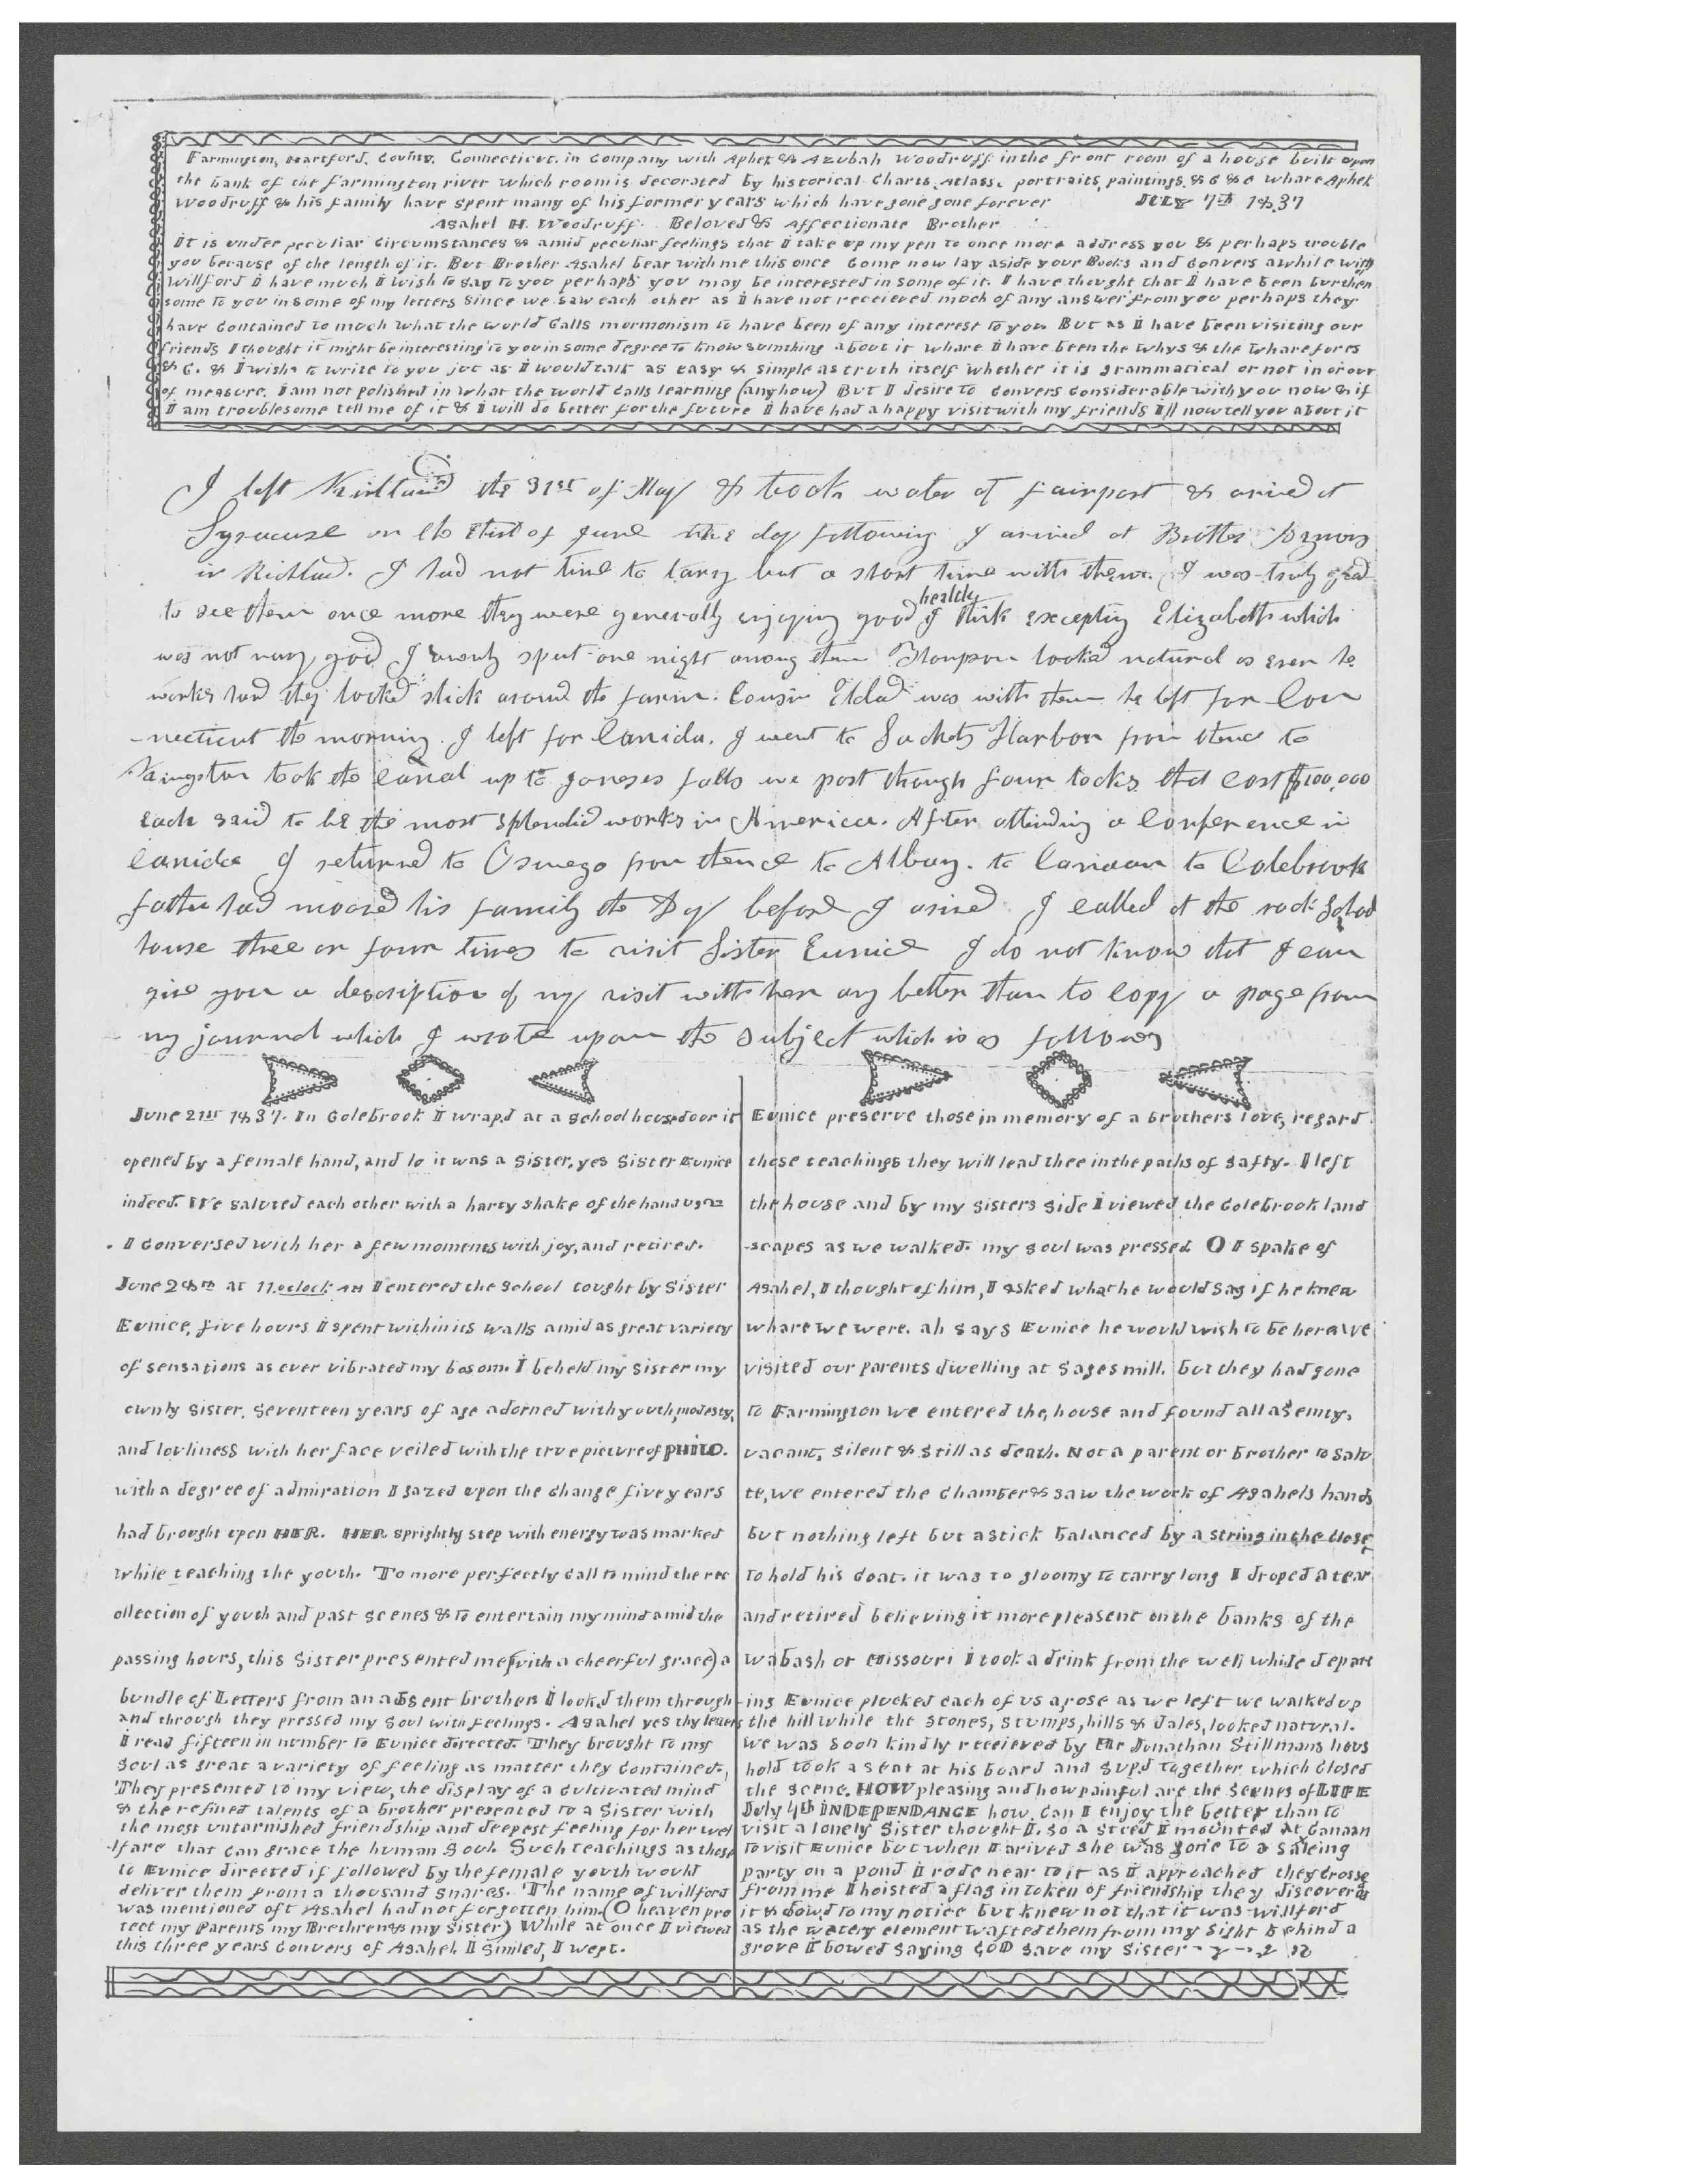 Farmington, Hartford, County. Connecticut. in Company with Aphek & Azubah Woodruff in the front room of a house built upon
the bank of the farmington river which room is decorated by historical Charts, Atlass, portraits, paintings, & C & C whare Aphek
Woodruff & his family have spent many of his former years which have gone gone forever JULY 7th 1837
Asahel H. Woodruff. Beloved & Affectionate Brother
It is under peculiar Circumstances & amid peculiar feelings that I take up my pen to once more address you & perhaps trouble
you because of the length of it. But Brother Asahel bear with me this once Come now lay aside your Books and Convers awhile with
Willford I have much I wish to say to you perhaps you may be interested in some of it. I have thought that I have been burthen
some to you in some of my letters since we saw each other as I have not receieved much of any answer from you perhaps they
have Contained to much what the world Calls mormonism to have been of any interest to you But as I have been visiting our
friends I thought it might be interesting to you in some degree to know sumthing about it whare I have been the whys & the wharefores
& C. & I wish to write to you jut as I would talk as easy & simple as truth itself whether it is grammatical or not in or out
of measure. I am not polished in what the world Calls learning (anyhow) But I desire to Convers Considerable with you now & if
I am troublesome tell me of it & I will do better for the future I have had a happy visit with my friends Ill now tell you about it
I left Kirtland the 31st of May & took water at fairport & arived at
Syracuse on the of June the day following I arived at Brother Azmons
in Richland. I had not time to tarry but a short time with them. I was truly glad
to see them once more they were generally enjoying good health I think excepting Elizabeth which
was not very good I ownly spent one night among them Thompson looked natural as ever he
works hard they looked slick around the farm. Cousin Eldad was with them he left for Con
-necticut the morning I left for Canida. I went to Sackets Harbor from thence to
Kingston took the canal up to Joneses falls we past through four locks that cost $100,000
each said to be the most splendid works in America. After attending a Conference in
Canida I returned to Oswego from thence to Albany. to Canaan to Colebrook
father had mooved his family the Day before I arived I called at the rock School
house three or four times to visit Sister Eunice I do not know that I can
give you a description of my visit with her any better than to copy a page from
my journal which I wrote upon the subject which is as follows
June 21st 1837. In Colebrook I wrap,d at a School house door it
opened by a female hand, and lo it was a Sister, yes Sister Eunice
indeed. We saluted each other with a harty shake of the hand
I Conversed with her a few moments with joy, and retired.
June 28th at 11. oclock AM I entered the School tought by Sister
Eunice, five hours I spent within its walls amid as great variety
of sensations as ever vibrated my bosom. I beheld my Sister my
ownly Sister, Seventeen years of age adorned with youth, modesty,
and lovliness with her face veiled with the true picture of PHILO.
with a degree of admiration I gazed upon the Change five years
had brought upon HER. HER sprightly step with energy was marked
while teaching the youth. To more perfectly Call to mind the rec
ollection of youth and past scenes & to entertain my mind amid the
passing hours, this Sister presented me (with a cheerful grace) a
bundle of Letters from an absent brother. I look,d them through
and through they pressed my Soul with feelings. Asahel yes thy letters
I read fifteen in number to Eunice directed. They brought to my
Soul as great a variety of feeling as matter they Contained,
They presented to my view, the display of a Cultivated mind
& the refined talents of a brother presented to a Sister with
the most untarnished friendship and deepest feeling for her wel
-fare that Can grace the human Soul. Such teachings as those
to Eunice directed if followed by the female youth would
deliver them from a thousand snares. The name of Willford
was mentioned oft Asahel had not forgotten him. (O heaven pro
tect my Parents my Brethren & my Sister) While at once I viewed
this three years Convers of Asahel I Smiled, I wept.
Eunice preserve those in memory of a brothers love, regard
those teachings they will lead thee in the paths of Safty. I left
the house and by my Sisters Side I viewed the Colebrook land
-scapes as we walked. my Soul was pressed O I spake of
Asahel, I thought of him, I asked what he would Say if he knew
whare we were. ah says Eunice he would wish to be here We
visited our parents dwelling at Sages mill. but they had gone
to Farmington we entered the, house and found all as emty,
vacant, silent & still as death. Not a parent or brother to Salu
te, we entered the Chamber & saw the work of Asahels hands
but nothing left but a stick balanced by a string in the Close
to hold his Coat. it was to gloomy to tarry long I droped a tear
and retired believing it more pleasent on the banks of the
wabash or Missouri I took a drink from the well while depart
-ing Eunice plucked each of us a rose as we left we walked up
the hill while the stones, stumps, hills & dales, looked natural.
We was soon kindly receieved by Mr Jonathan Stillmans hous
hold took a seat at his board and sup,d together which Closed
the scene. HOW pleasing and how painful are the Scenes of LIFE
July 4th INDEPENDANCE how, Can I enjoy the better than to
visit a lonely Sister thought I. so a Steed I mounted at Canaan
to visit Eunice but when I arived she was gone to a saleing
party on a pond I rode near to it as I approached they Crosse
from me I hoisted a flag in token of friendship they discovered
it & bow,d to my notice but knew not that it was Willford
as the watery element wafted them from my Sight behind a
grove I bowed Saying GOD Save my Sister